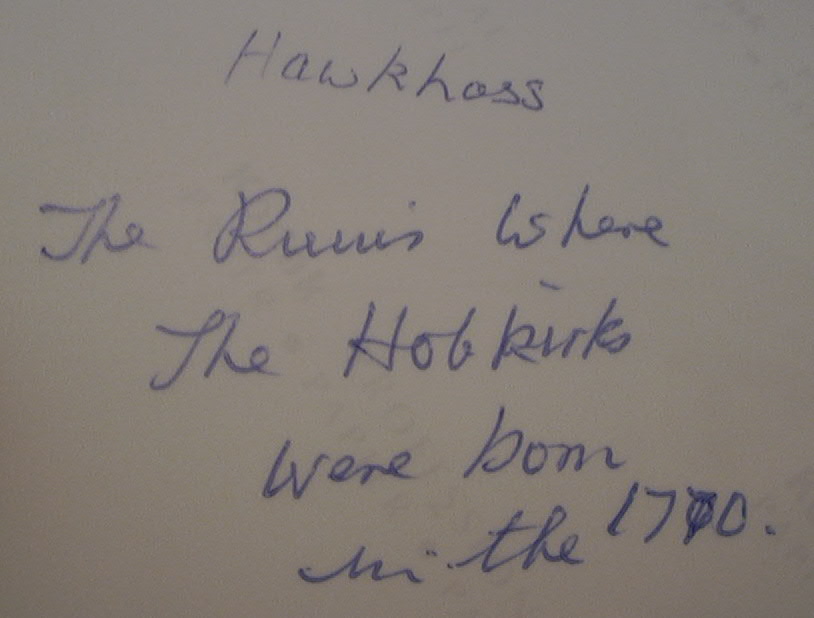 Hawkhass
The Ruins where
The Hobkirks
were born
in the